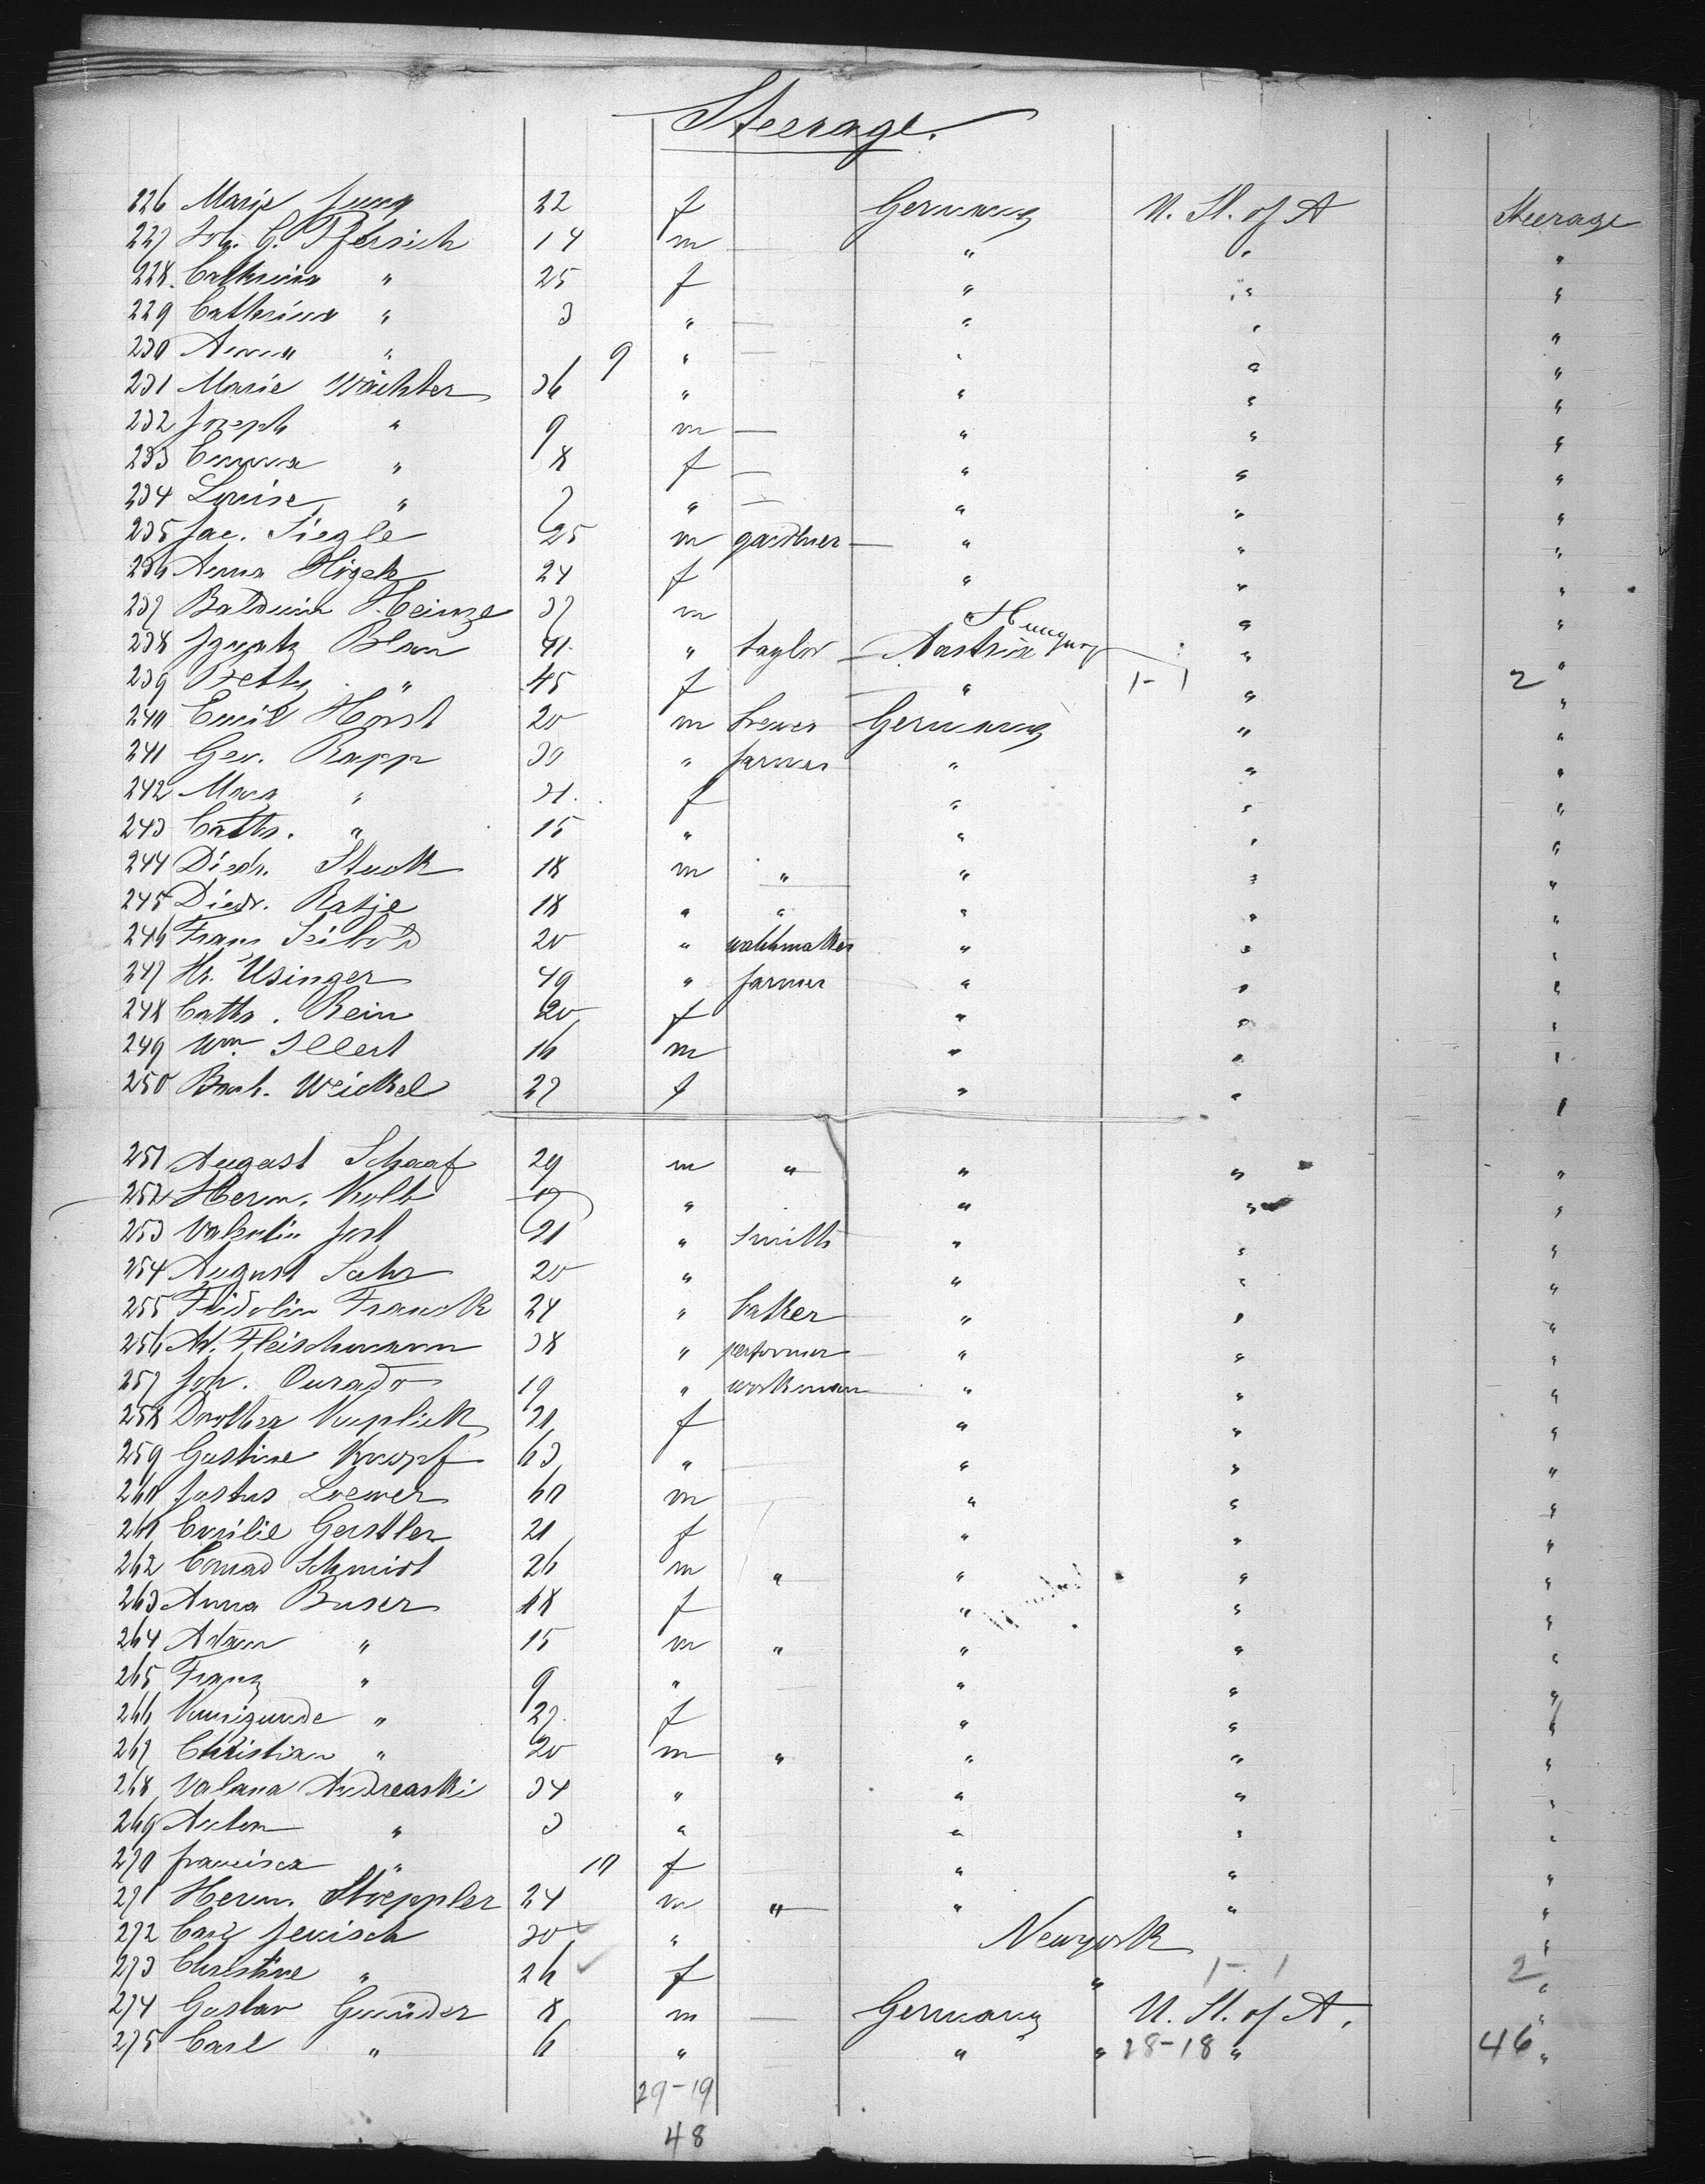 Steerage.
226 Marie Jung 22 f Germany U. St. of A Steerage
227 Joh. G. Pfersich 14 m — " " "
228. Cathrina " 25 f " " "
229 Catherina " 3 " — " " "
230 Anna " 9 " — " " "
231 Marie Wächter 36 " " " "
232 Joseph " 9 m — " " "
233 Emma " 8 f — " " "
234 Louise " 7 " — " " "
235 Jac. Siegle 25 m gardtner — " " "
236 Anna 24 f " " "
237 Balduin Heinze 37 m " " "
238 Ignatz Blau 41. " taylor — Austria Hungary " "
239 Betty " 45 f " 1-1 " 2 "
240 Emil Horst 20 m brewer Germany " "
241 Geo. Rapp 30 " farmer " " "
242 Mary " 31. f " " "
243 Cath. " 15 " " " "
244 Diedr. Stuck 18 m " " " "
245 Diedr. Ratje 18 " " " " "
246 Franz Seibold 20 " watchmaker " " "
247 Hr. Usinger 49 " farmer " " "
248 Cath. Rein 20 f " " "
249 Wm. Illert 16 m " " "
250 Barb. Weickel 27 f " " "
251 August Schaaf 29 m " " " "
252 Herm. Kolb 17 " " " "
253 Valentin Jost 21 " smith " " "
254 August Sahr 20 " " " "
255 Fridolin Franck 24 " baker " " "
256 Ad. Fleischmann 38 " performer " " "
257 Joh. 19 " workman " " "
258 Dorothea 21 f " " "
259 Gustine Knopf 63 " " " "
260 Justus Loewer 60 m " " "
261 Emilie Gerstler 21 f " " "
262 Conrad Schmidt 26 m " " " "
263 Anna Buser 18 f " " "
264 Adam " 15 m " " " "
265 Franz " 9 " " " "
266 Kunigunde " 27. f " " "
267 Christian " 20 m " " " "
268 Valana Andreaski 34 " " " "
269 Anton " 3 " " " "
270 Francisca " 10 f " " "
271 Herm. Stoeppler 24 m " " " "
272 Carl Jenisch 30 " Newyork "
273 Christine " 26 f " 1-1 2 "
274 Gustav Gmünder 8 m — Germany U. St. of A. "
275 Carl " 6 " " " 28-18 " 46 "
29-19
48